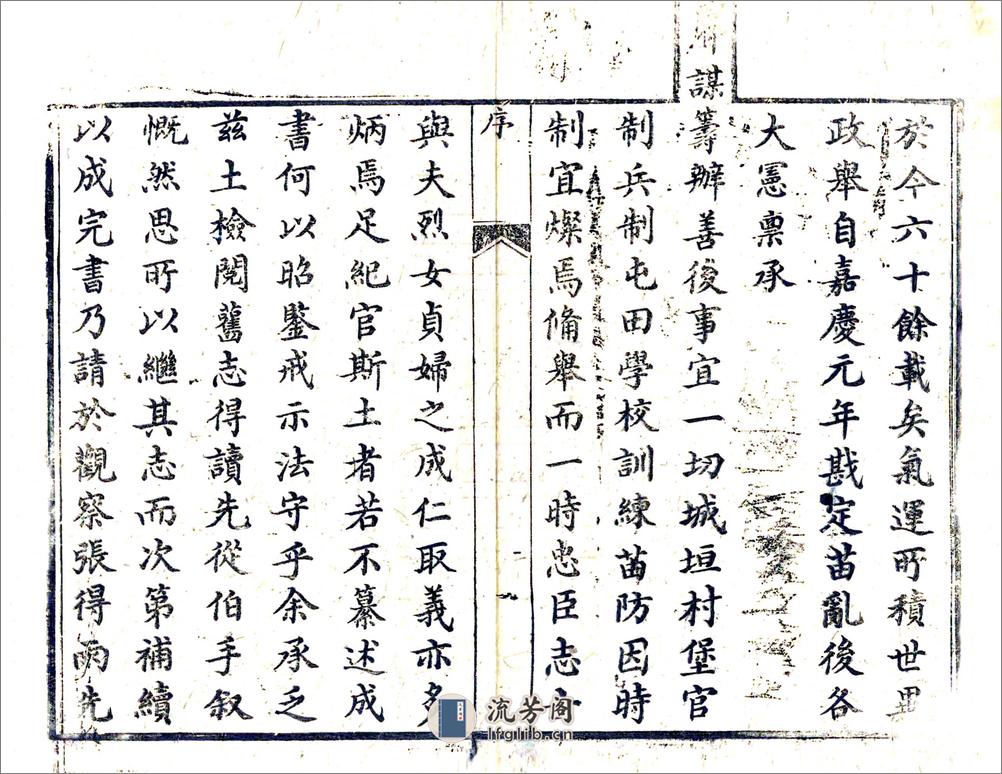 於今六十餘載矣氣運所積世異
政舉自嘉慶元年戡定苗亂後各
大憲稟承
謀籌辦善後事宜一切城垣村堡官
制兵制屯田學校訓練苗防因時
制宜燦焉俻舉而一時忠臣志
序
與夫烈女貞婦之成仁取義亦多
炳焉足紀官斯土者若不纂述成
書何以昭鑒戒示法守乎余承乏
茲土檢閱舊志得讀先從伯手叙
慨然思所以繼其志而次第補續
以成完書乃請於觀察張得兩先
流芳阁
lfglib.cn